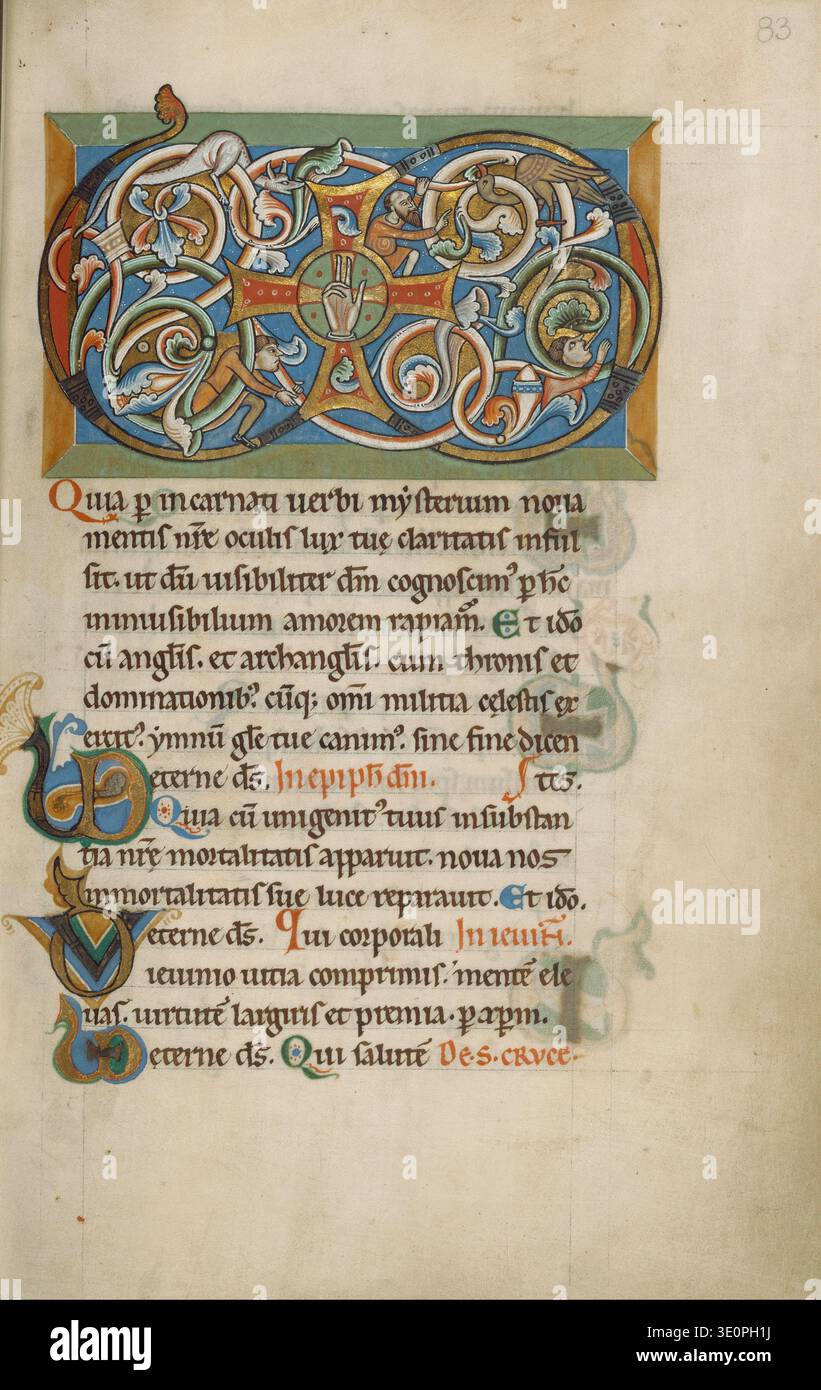 83
Quia p̄ incarnati uerbi mẏsterium noua
mentis nr̄e oculis lux tuę claritatis inful
sit. ut dū uisibiliter dm̄ cognoscimꝰ p̄ hc̄
inuisibilium amorem rapiam̄. Et idō
cū angl̄is. et archangl̄is. cum thronis et
dominationibꝫ. cūqꝫ om̄i militia cęlestis ex
ercitꝰ. ẏmnū gl̄e tue canimꝰ. sine fine dicen
eterne ds̄. In epiph̄ dm̄i. tes.
Quia cū unigenitꝰ tuus in substan
tia nr̄ę mortalitatis apparuit. noua nos
inmortalitatis sue luce reparauit. Et idō.
eterne ds̄. Qui corporali In ieiun̄.
ieiunio uitia comprimis. mentē ele
uas. uirtutē largiris et premia. p̄ xp̄m.
eterne ds̄. Qui salutē De. S. CRUCE.
alamy
alamy
alamy
a
a
a
alamy
Image ID: 3E0PH1J
www.alamy.com